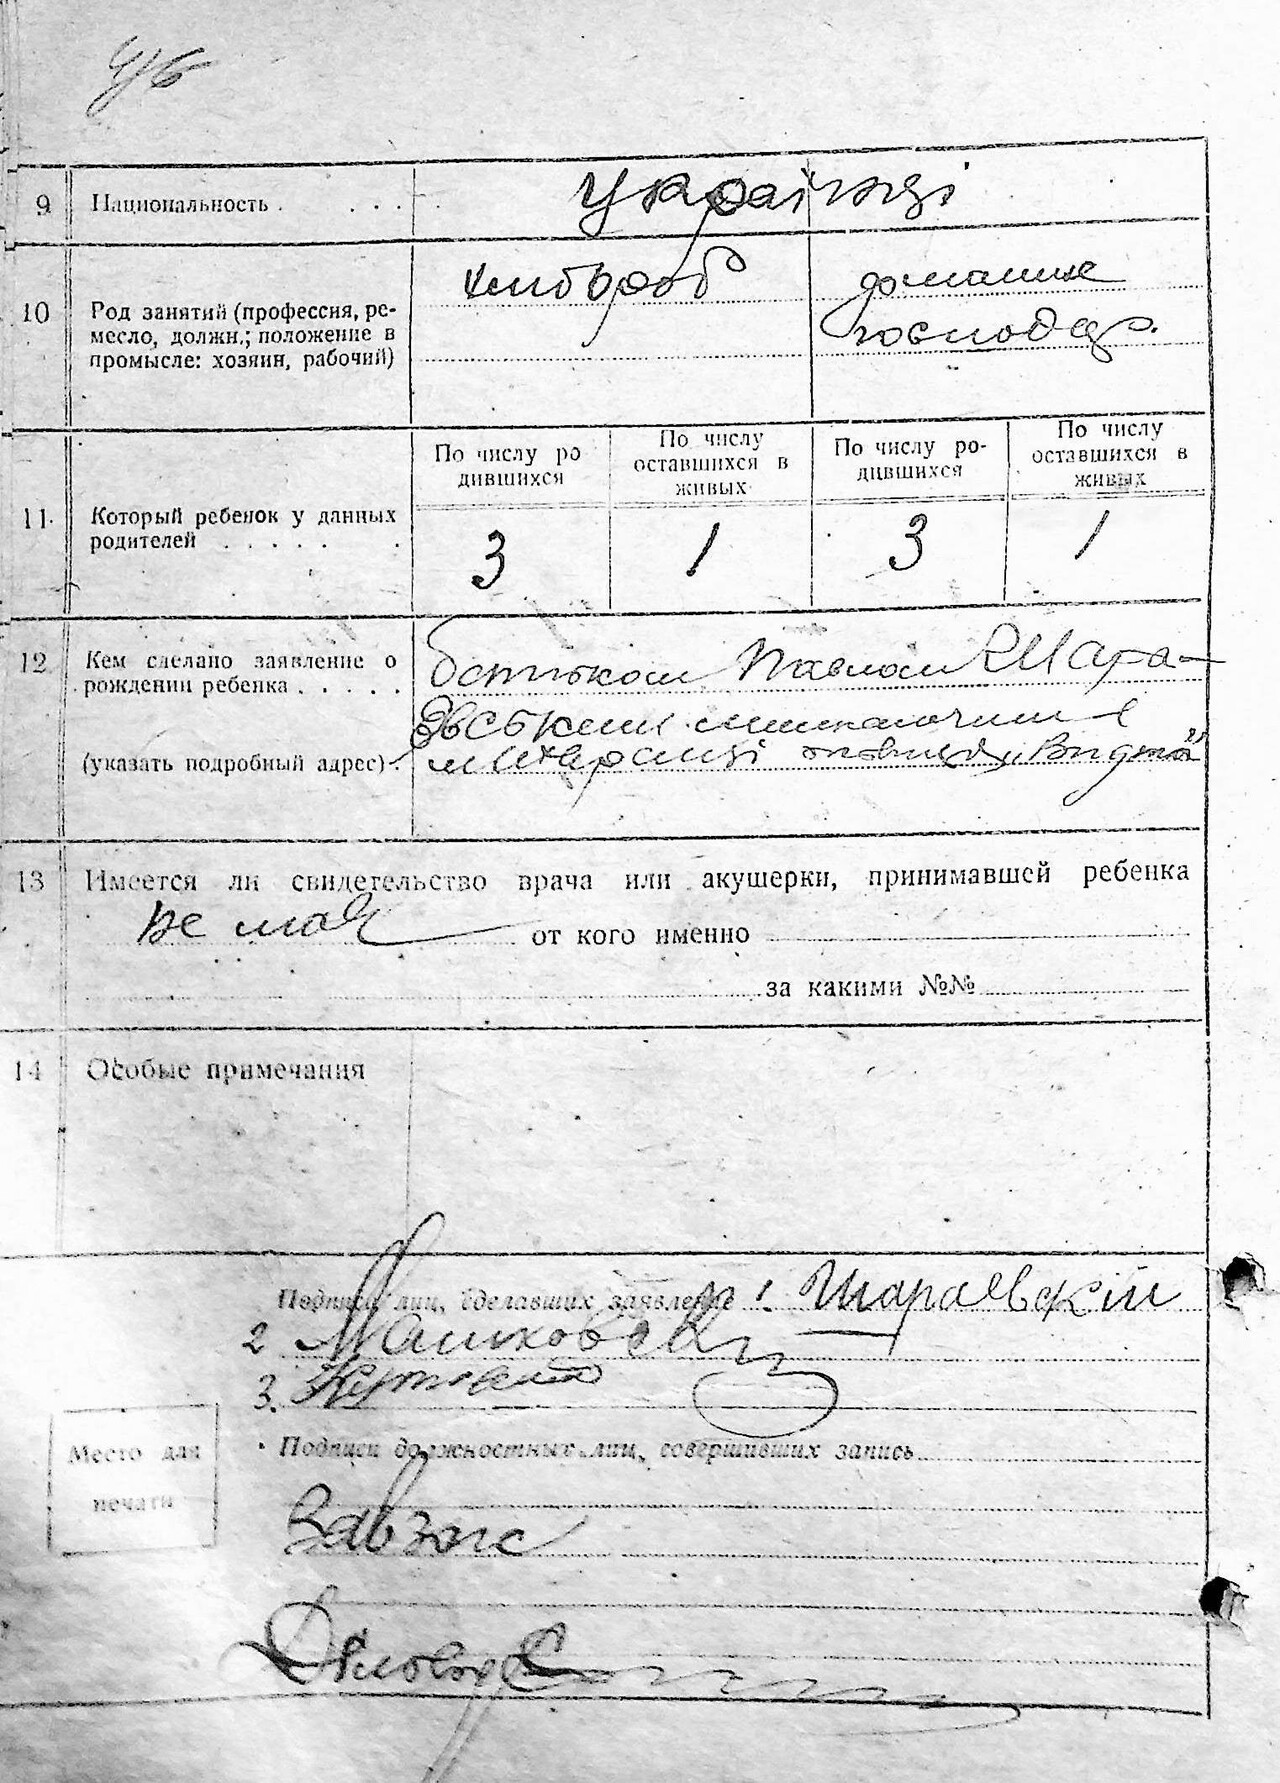 9 Национальность . . . . українці
10 Род занятий (профессия, ре-
месло, должн.; положение в
промысле: хозяин, рабочий)
хлібороб
домашнє
господар.
11 Который ребенок у данных
родителей . . . . . .
По числу ро
дившихся
По числу
оставшихся в
живых
По числу ро-
дившихся
По числу
оставшихся в
живых
3 1 3 1
12 Кем сделано заявление о
рождении ребенка . . . . .
(указать подробный адрес) .
батьком Павлом Шара-
євським
13 Имеется ли свидетельство врача или акушерки, принимавшей ребенка
не має от кого именно
за какими №№
14 Особые примечания
Подписи лиц, сделавших заявление 1. Шараевскій
2
3.
Подписи должностных лиц, совершивших запись
Место для
печати
Завзагс
Діловод